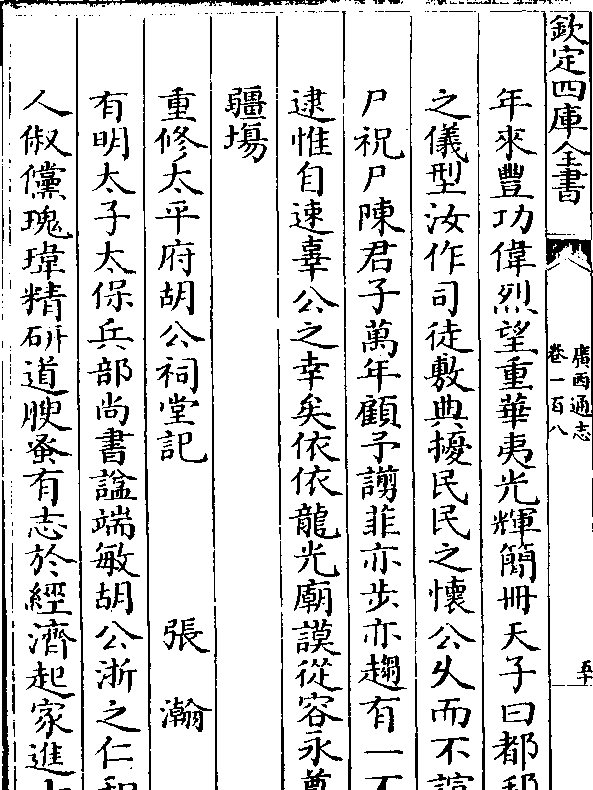 欽定四庫全書
廣西通志
卷一百八
五十
年來豐功偉烈望重華夷光輝簡冊天子曰都
之儀型汝作司徒敷典擾民民之懷公乆而不諠
尸祝尸陳君子萬年顧予謭菲亦步亦趨有一不
逮惟自速辜公之幸矣依依龍光廟謨從容永奠
疆埸
重修太平府胡公祠堂記 張瀚
有明太子太保兵部尚書諡端敏胡公浙之仁和
人俶儻瑰瑋精研道腴蚤有志於經濟起家進士